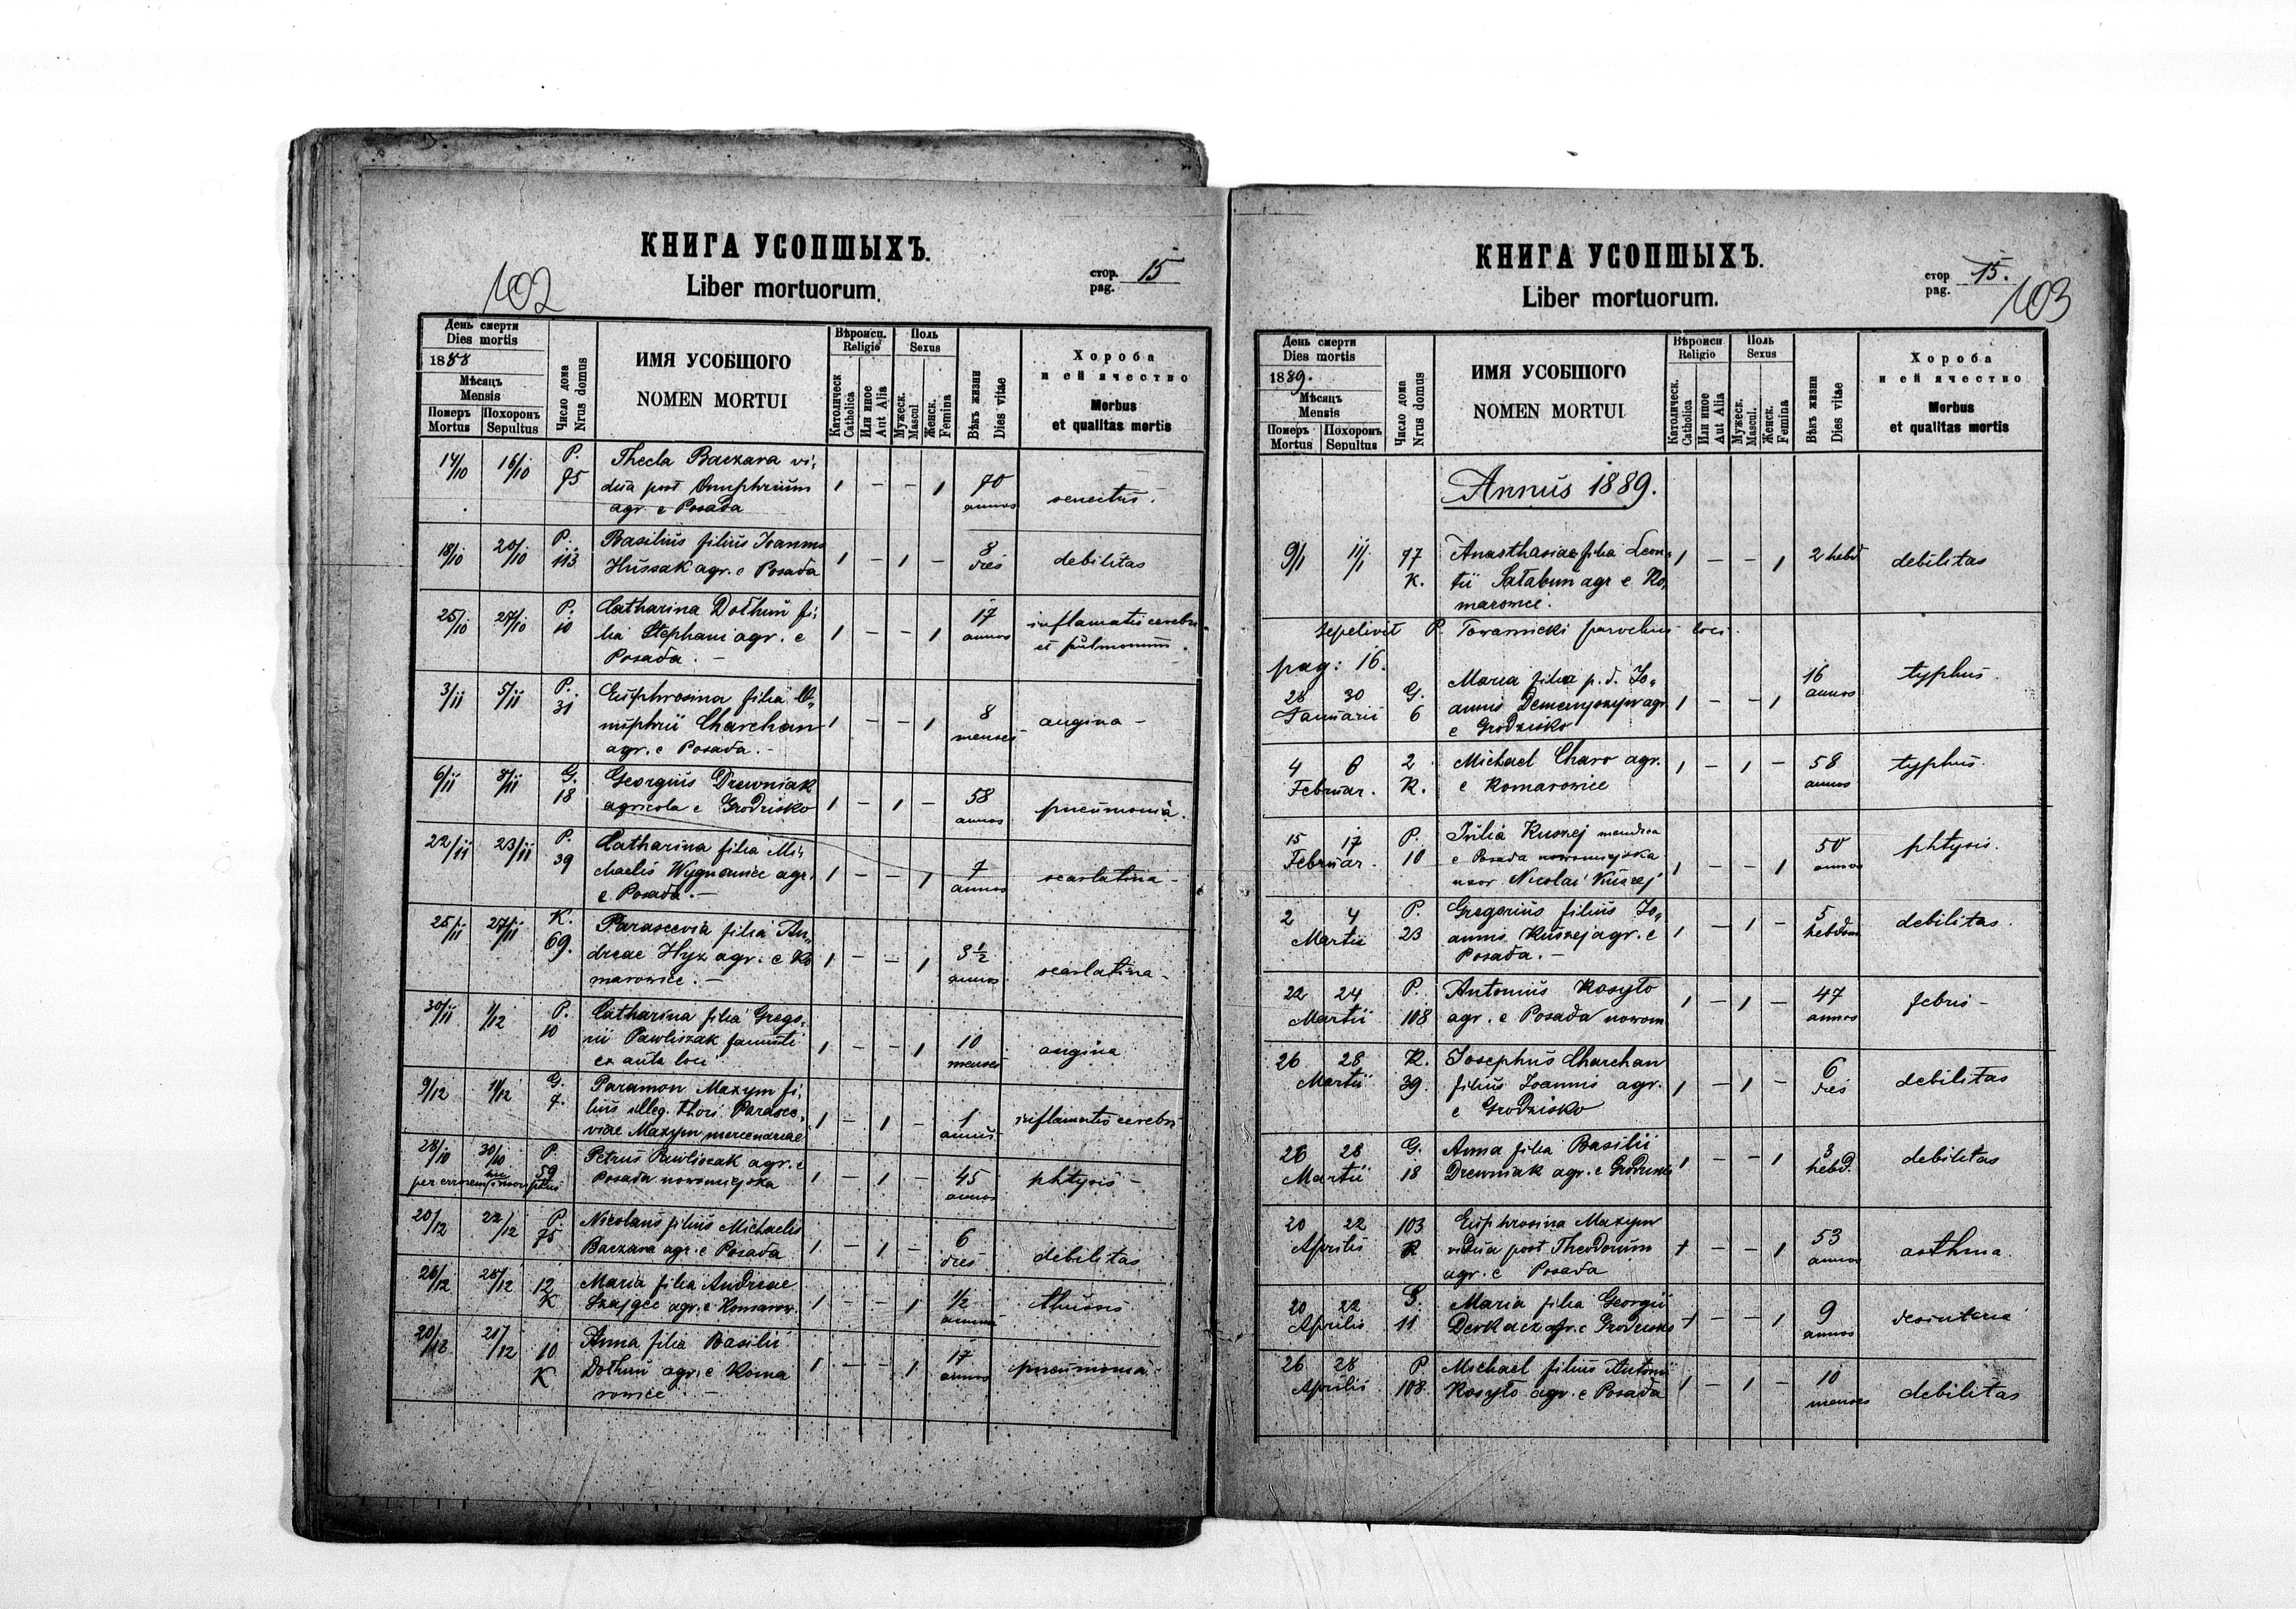 КНИГА УСОПШЫХЪ.
102
Liber mortuorum.
стор. pag. 15
День смерти Dies mortis
1888
Мѣсяцъ Mensis
Померъ Mortus
Похоронъ Sepultus
Число дома Nrus domus
ИМЯ УСОБШОГО
NOMEN MORTUI
Вѣроисп. Religio
Католическ Catholica
Или иное Aut Alia
Поль Sexus
Мужеск. Mascul
Женск. Femina
Вѣкъ жизни Dies vitae
Хороба
и ей ячество
Morbus
et qualitas mortis
14/10 16/10 P. 75
Thecla Baczara vi-
dua post Onuphrium
agr. e Posada
1 - - 1 70 annos senectus.
18/10 20/10 P. 113
Basilius filius Joannis
Hussak agr. e Posada
1 - 1 - 8 dies debilitas
25/10 27/10 P. 10
Catharina Dołhun fi-
lia Stephani agr. e
Posada. -
1 - - 1 17 annos inflamatis cerebri
et pulmonum.
3/11 5/11 P. 31
Euphrosina filia O-
nuphrii Charchan
agr. e Posada. -
1 - - 1 8 menses angina -
6/11 8/11 G. 18
Georgius Drewniak
agricola e Grodzisko
1 - 1 - 58 annos pneumonia.
22/11 23/11 P. 39
Catharina filia Mi-
chaelis Wygnaniec agr.
e Posada. -
1 - - 1 7 annos scarlatina -
25/11 27/11 K. 69.
Parascevia filia An-
dreae Hyz agr. e Ko
marowice. -
1 - - 1 3 1/2 annos scarlatina -
30/11 1/12 P. 10
Catharina filia Grego-
rii Pawliszak famuli
ex aula loci
1 - - 1 10 menses angina
9/12 11/12 G. 7.
Paramon Maxym fi-
lius illeg. thori Parasce-
viae Maxym mercenariae
1 - 1 - 1 annus inflamatis cerebri
28/10 30/10 P. 59
per errorem
Petrus Pawliszak agr. e
Posada nowomiejska
1 - 1 - 45 annos phtysis -
20/12 22/12 P. 75
Nicolaus filius Michaelis
Baczara agr. e Posada
1 - 1 - 6 dies debilitas
26/12 28/12 12 K
Maria filia Andreae
Szajgec agr. e Komarow.
1 - - 1 1/2 thussis
10 K
Anna filia Basilii
Dołhun agr. e Koma
rowice -
1 - - 1 17 annos pneumonia -
КНИГА УСОПШЫХЪ.
Liber mortuorum.
стор pag. 15.
103
День смерти Dies mortis
1889.
Мѣсяцъ Mensis
Померъ Mortus
Похоронъ Sepultus
Число дома Nrus domus
ИМЯ УСОБШОГО
NOMEN MORTUI
Вѣроисп Religio
Католическ. Catholica
Или иное Aut Alia
Поль Sexus
Мужеск. Mascul.
Женск. Femina
Вѣкъ жизни Dies vitae
Хороба
и ей ячество
Morbus
et qualitas mortis
Annus 1889.
9/1 11/1 77 K.
Anasthasiae filia Leon-
tii Sałabun agr e Ko-
marowice.
1 - - 1 2 hebd debilitas
sepelivit P. Towarnicki parochus loci.
pag: 16.
28 30 Januarii G. 6
Maria filia p. d. Jo-
annis Demenjczyn agr
e Grodzisko
1 - - 1 16 annos typhus.
4 6 Februar. 2 K.
Michael Charo agr.
e Komarowice
1 - 1 - 58 annos typhus.
15 17 Februar. P. 10
Julia Kuszej mendica
e Posada nowomiejska
uxor Nicolai Kuszej
1 - - 1 50 annos phtysis.
2 4 Martii P. 23
Gregorius filius Jo-
annis Kuszej agr. e
Posada. -
1 - 1 - 5 hebdom debilitas.
22 24 Martii P. 108
Antonius Kosyło
agr. e Posada nowom
1 - 1 - 47 annos febris -
26 28 Martii K. 39.
Josephus Charchan
filius Joannis agr.
e Grodzisko
1 - 1 - 6 dies debilitas
26 28 Martii G. 18
Anna filia Basilii
Drewniak agr. e Grodzisko
1 - - 1 3 hebd. debilitas
20 22 Aprilis 103 K
Euphrosina Maxym
vidua post Theodorum
agr. e Posada
1 - - 1 53 annos asthma.
20 22 Aprilis G. 11
Maria filia Georgii
Derkacz agr. e Grodzisko
1 - - 1 9 annos desinteria
26 28 Aprilis P. 108.
Michael filius Antonii
Kosyło agr. e Posada
1 - 1 - 10 menses debilitas